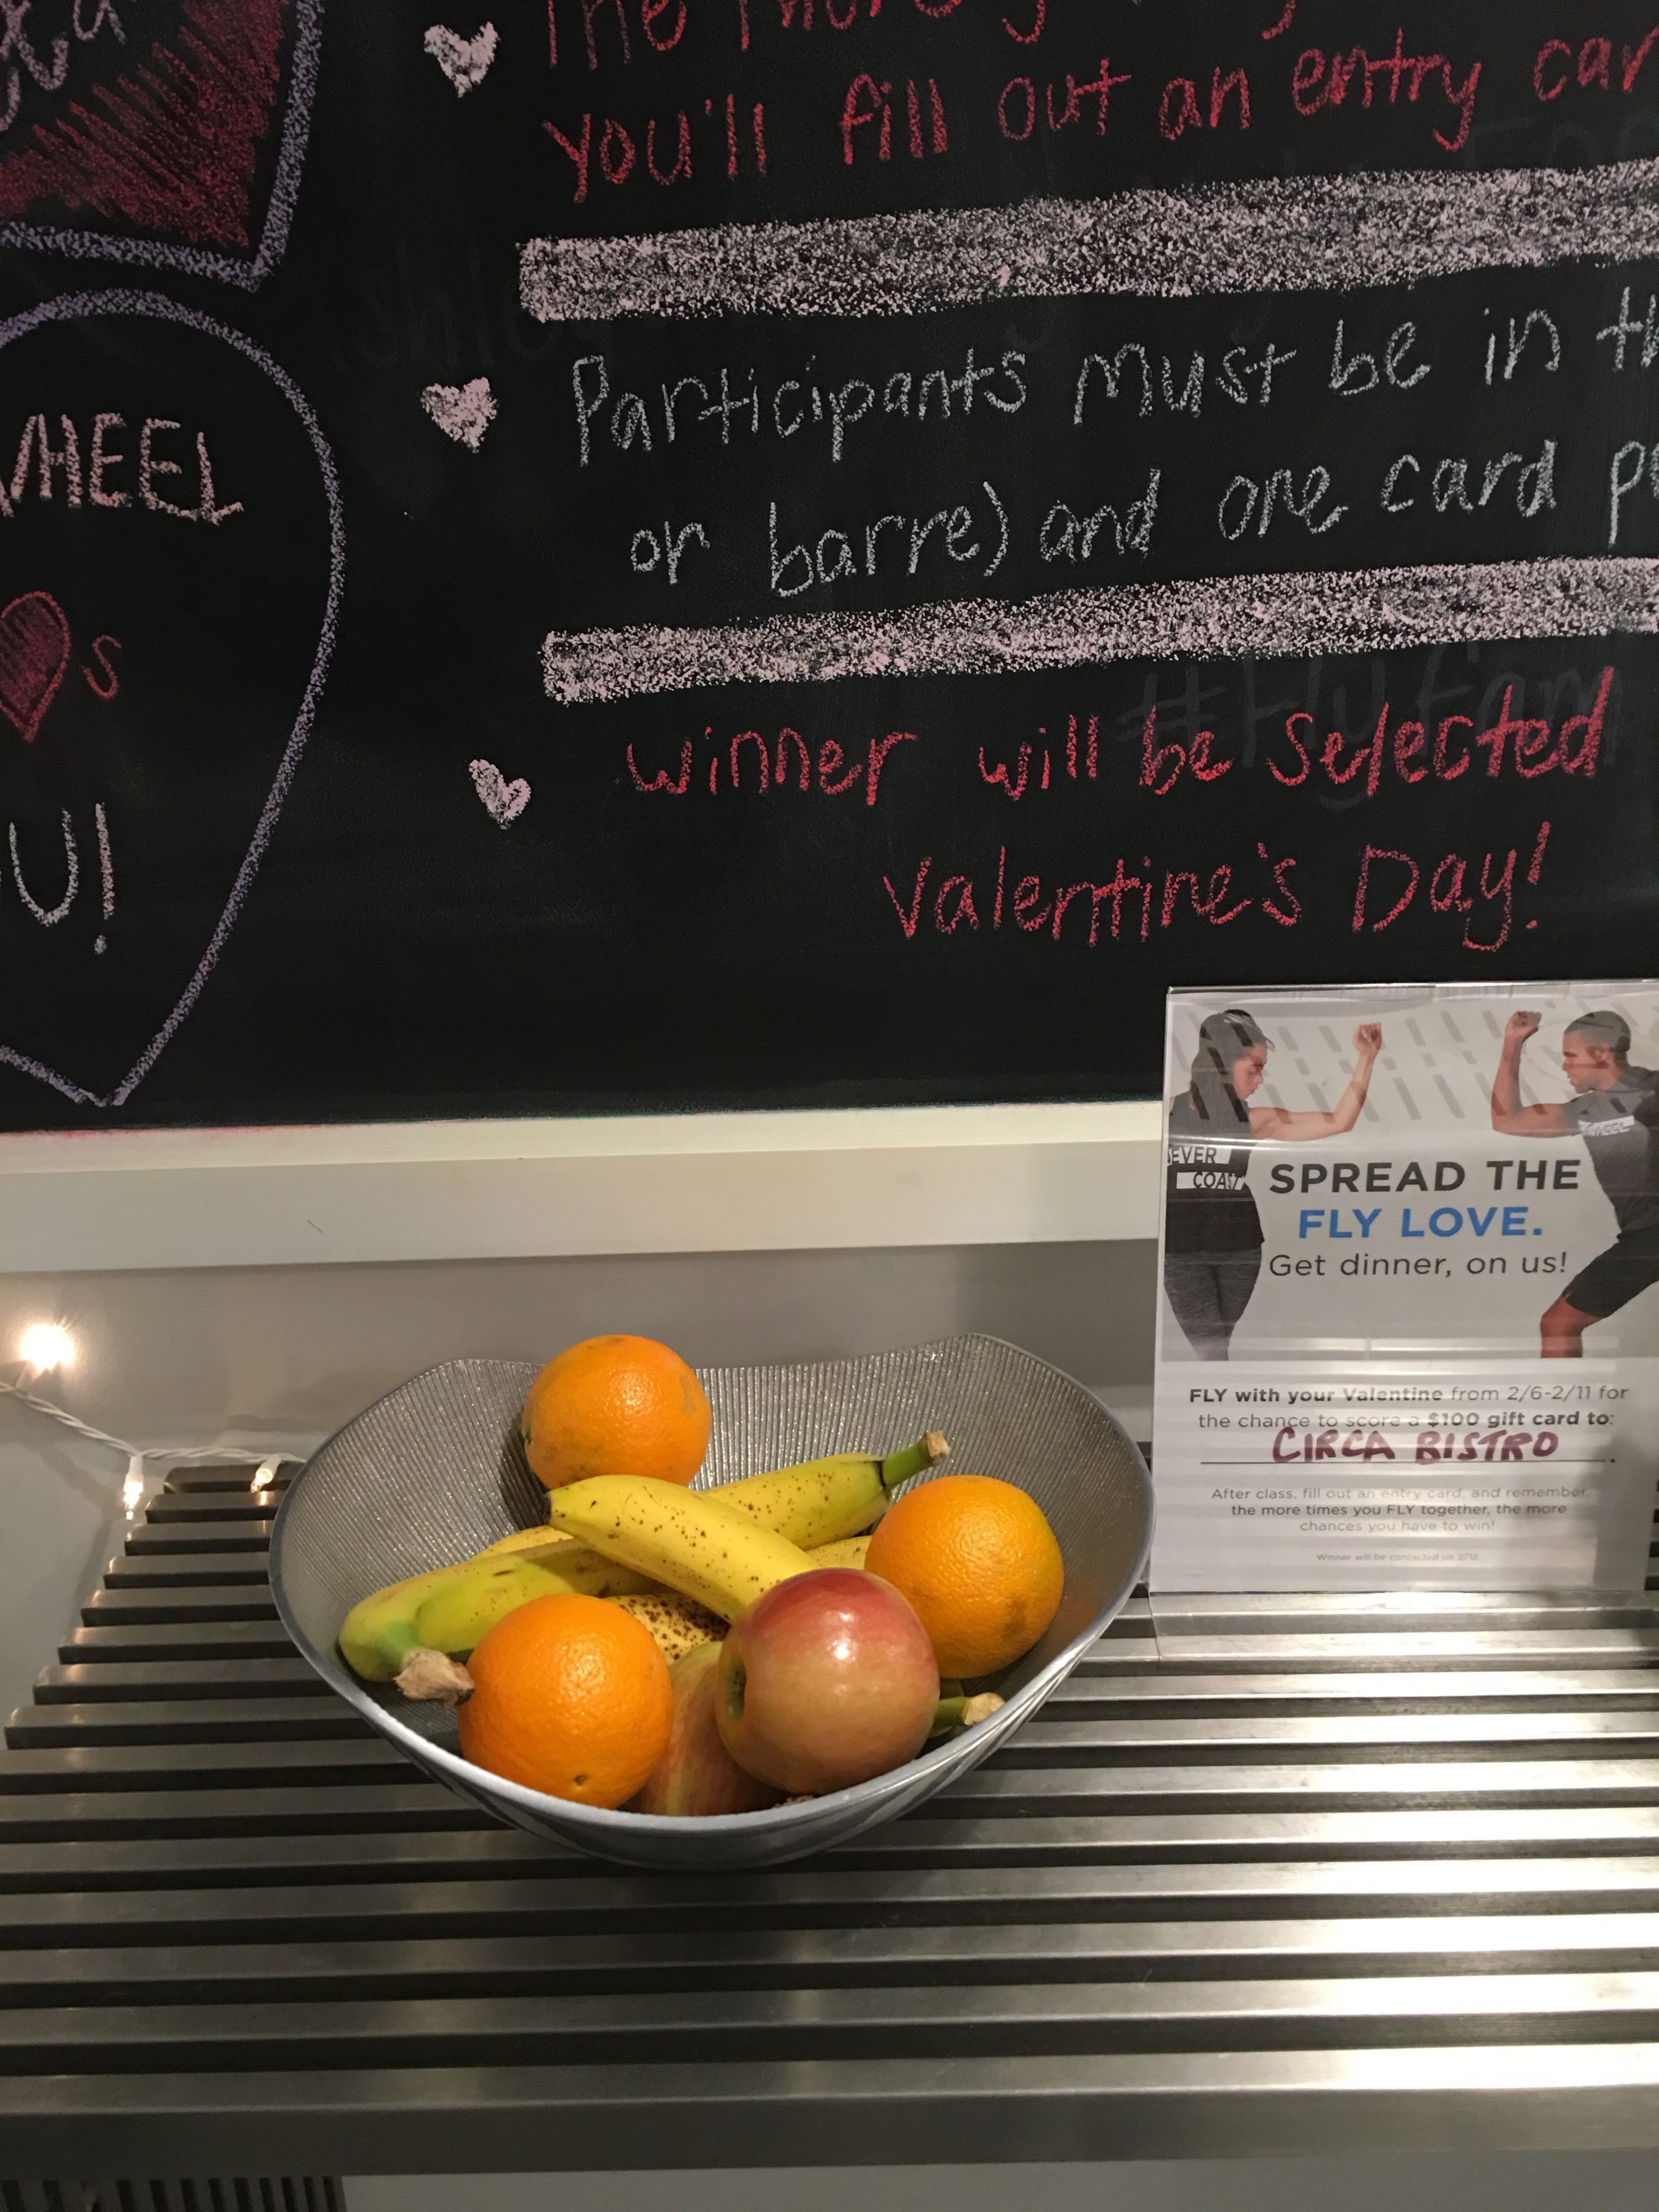 you'll fill out an entry
Participants must be in
or barre) and one card
winner will be selected
Valentine's Day!
WHEEL
s
U!
#FlyFam
EVER
COAST
SPREAD THE
FLY LOVE.
Get dinner, on us!
FLY with your Valentine from 2/6-2/11 for
the chance to score a $100 gift card to:
CIRCA BISTRO
After class, fill out an entry card, and remember,
the more times you FLY together, the more
chances you have to win!
Winner will be contacted on 2/12.